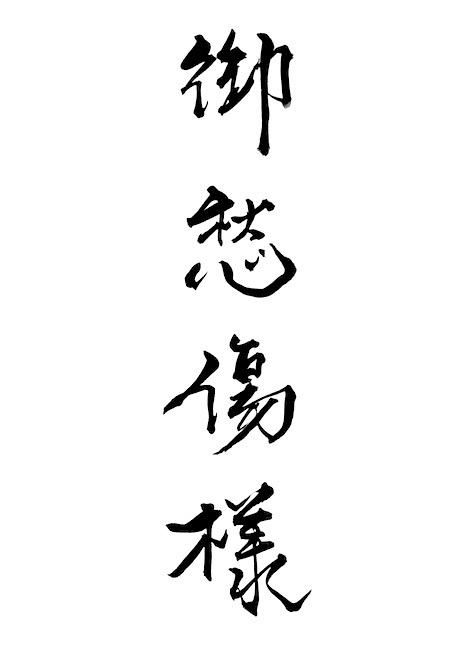 御愁傷様